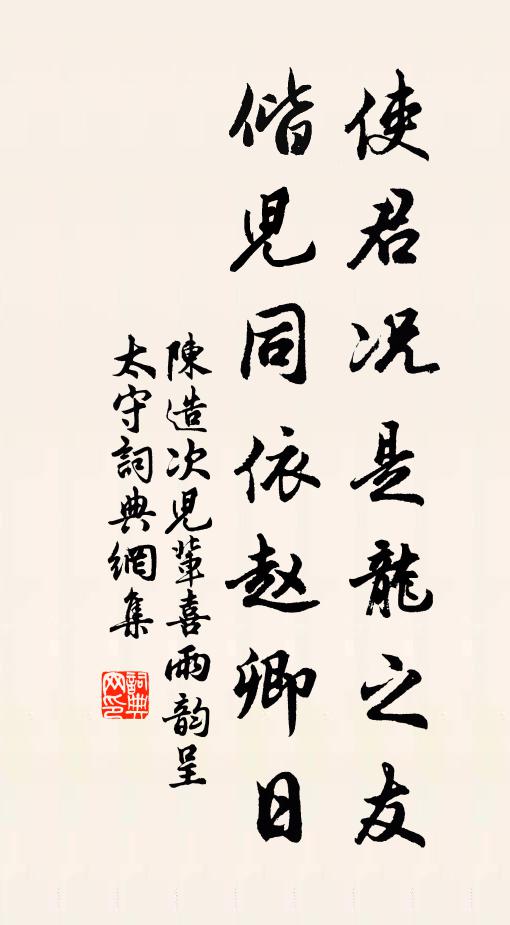 使君况是龍之友
偕児同依赵卿日
陳造次児輩喜雨韵呈
太守詞典網集
詞典
网印